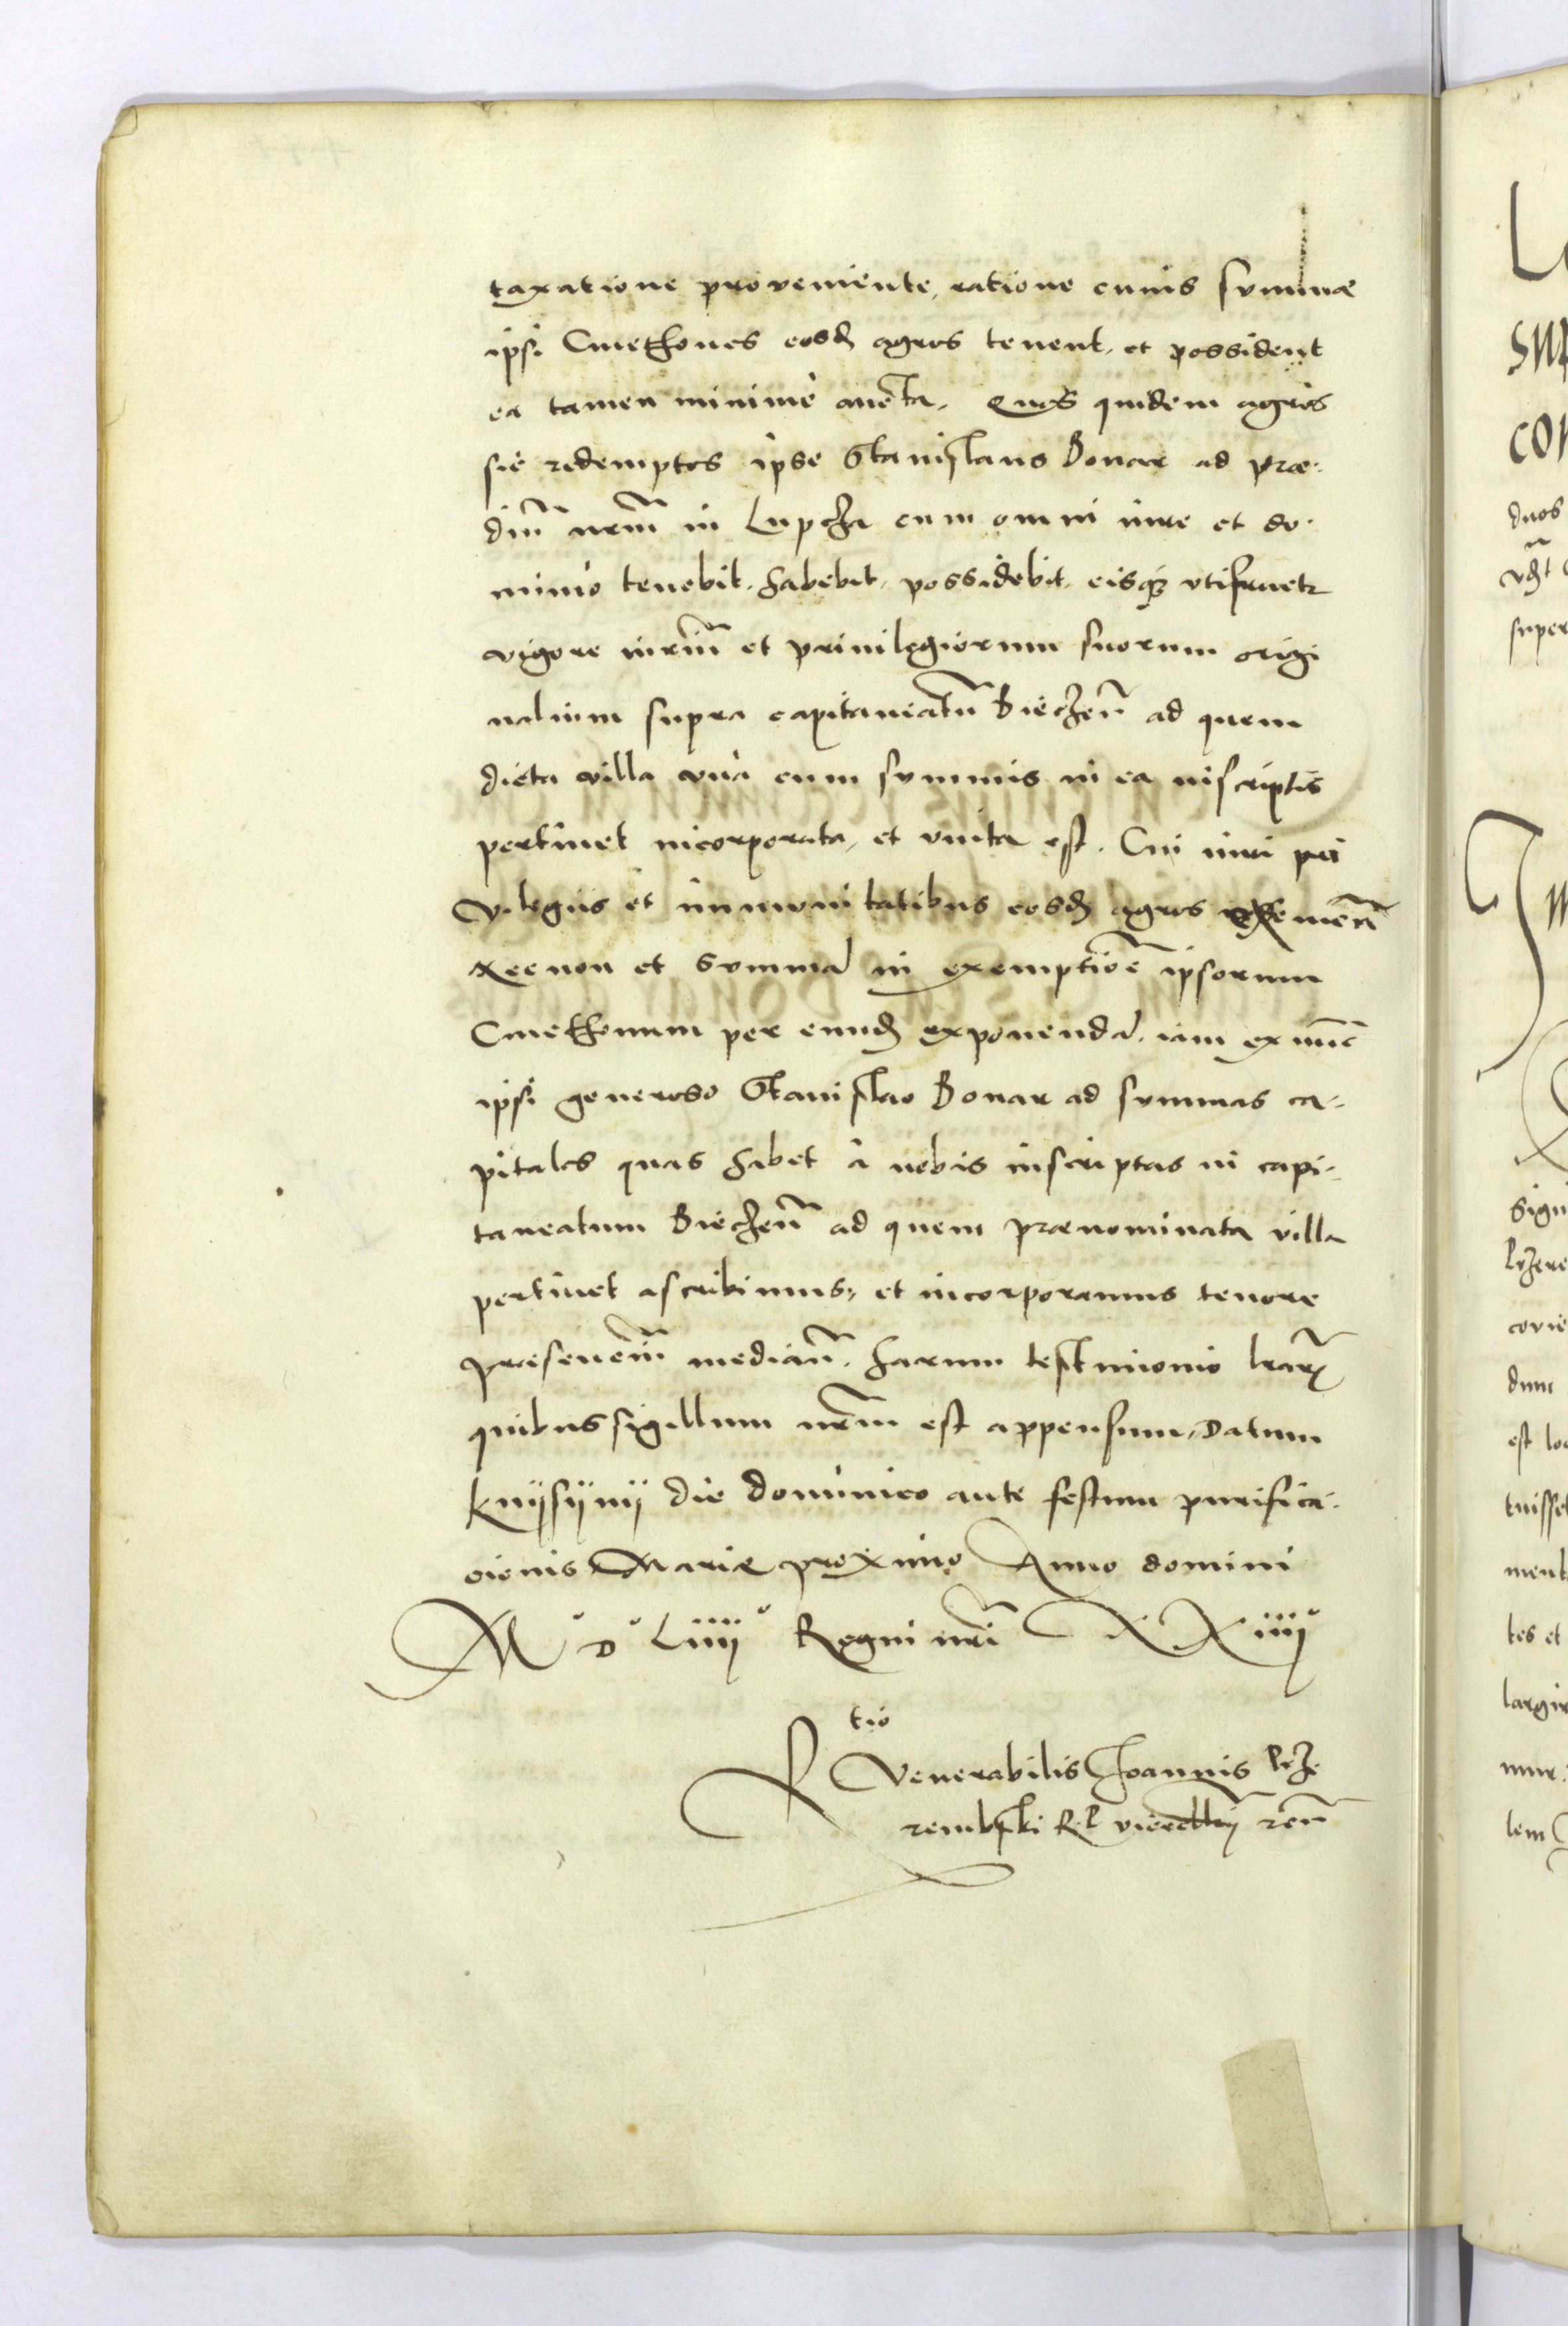 taxatione proveniente, ratione cuius summae
ipsi Cmethones eosd. agros tenent, et possident
ea tamen minimè aucta. Quos quidem agros
sic redemptos ipse Stanislaus Bonar ad præ-
diũ nrm̃ in Lupcza cum omni iure et do-
minio tenebit, habebit, possidebit, eisq; vtifruetr
vigore iuriũ et priuilegiorum suorum origi
nalium supra capitaneatũ Bieczeñ ad quem
dicta villa vna cum summis in ea inscriptis
pertinet incorporata, et vnita est. Cui iuri pri
vilegiis et immunitatibus eosd. agros
necnon et summã in exemptionẽ ipsorum
Cmethonum per eund. exponendã, iam ex nũc
ipsi generoso Stanislao Bonar ad summas ca-
pitales quas habet à nobis inscriptas in capi-
taneatum Bieczeñ ad quem prænominata villa
pertinet ascribimus, et incorporamus tenore
præsentiũ mediañ. harum testimonio lrar̃
quibus sigillum nrm̃ est appensum, Datum
Knÿsÿnÿ die dominico ante festum purifica-
cionis Mariæ proximo Anno domini
M° D° Liiij° Regni nrĩ XXiiij°
Rtio Venerabilis Joannis Prze
rembski R. P. viceca͠llrÿ reñ
L
duos
super
sign
covie
dum
est loc
tuisset
ment
tes et
largir
mur.
tem